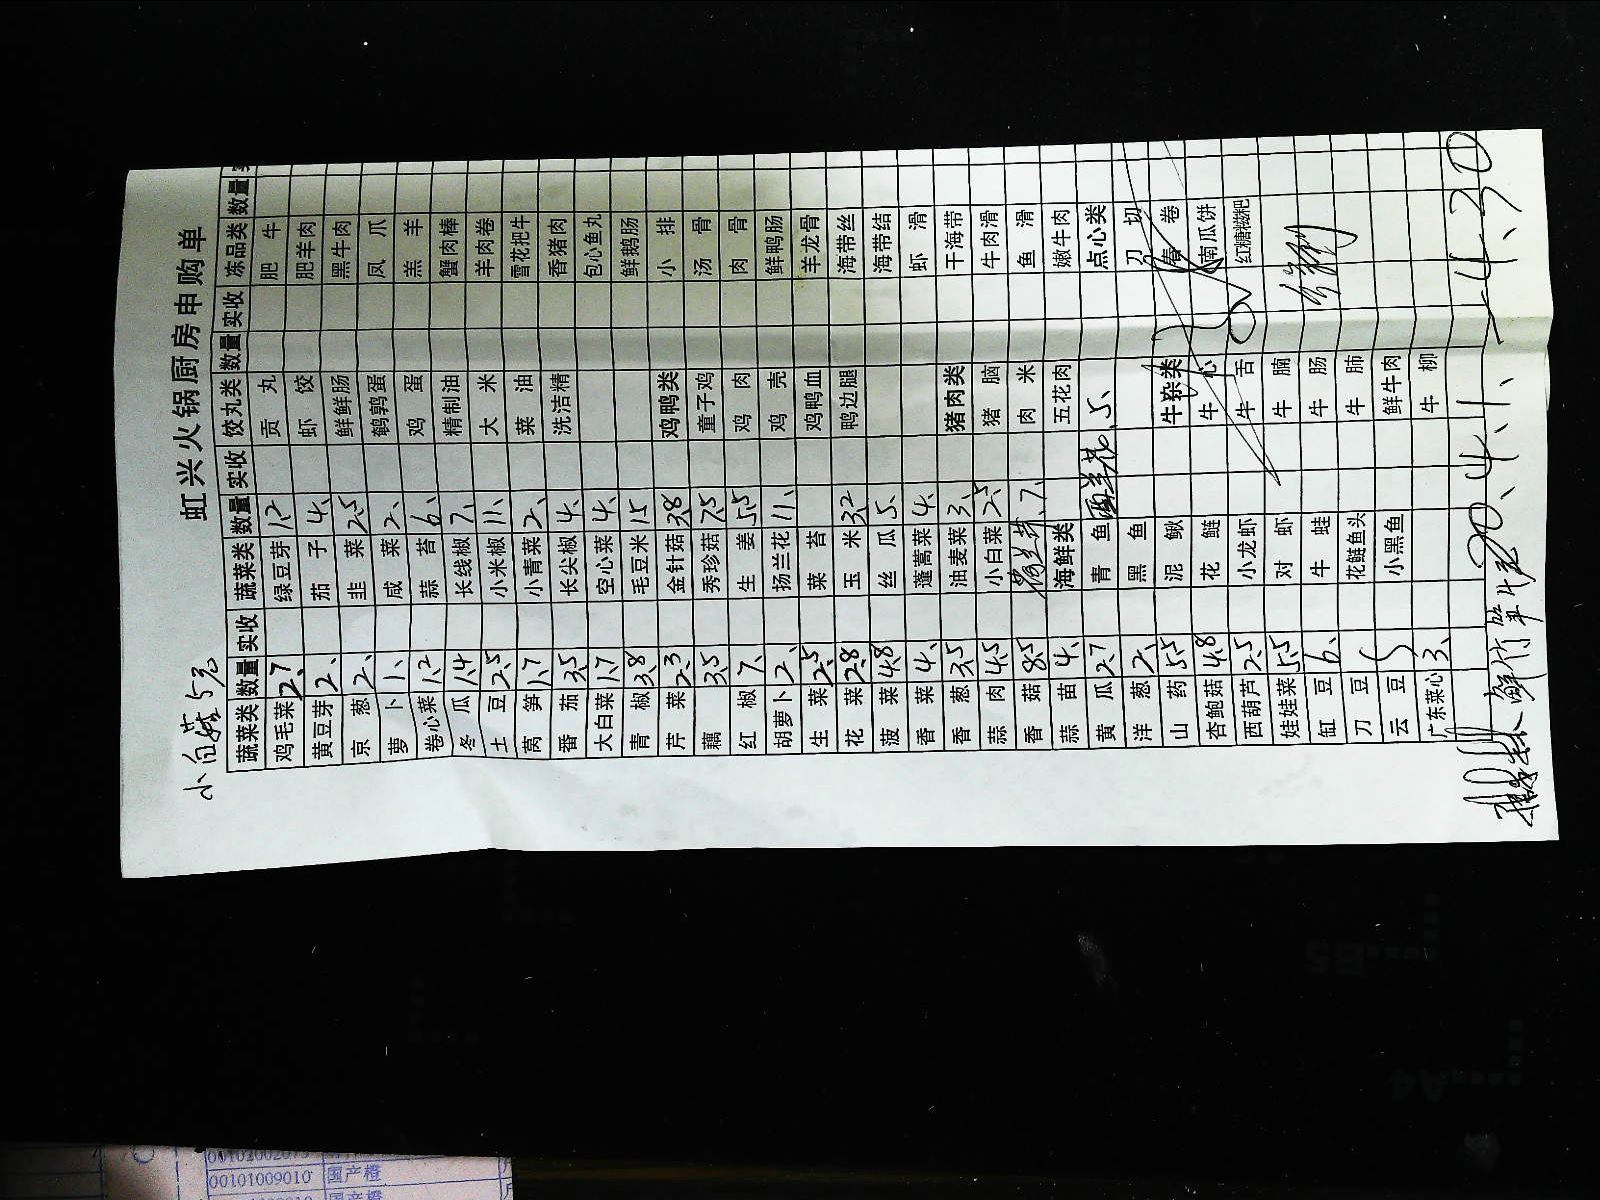 虹兴火锅厨房申购单
小白菇 5元
蔬菜类 数量 实收 蔬菜类 数量 实收 饺丸类 数量 实收 冻品类 数量
鸡毛菜 2.7 绿豆芽 1.2 贡丸 肥牛
黄豆芽 2、 茄子 4、 虾饺 肥羊肉
京葱 2、 韭菜 2.5 鲜鲜肠 黑牛肉
萝卜 1、 咸菜 2、 鹌鹑蛋 凤爪
卷心菜 1.2 蒜苔 6、 鸡蛋 羔羊
冬瓜 1.4 长线椒 7、 精制油 蟹肉棒
土豆 2.5 小米椒 11、 大米 羊肉卷
莴笋 1.7 小青菜 2、 菜油 雪花把牛
番茄 3.5 长尖椒 4、 洗洁精 香猪肉
大白菜 1.7 空心菜 4、 包心鱼丸
青椒 3.8 毛豆米 15 鲜鹅肠
芹菜 2.3 金针菇 3.8 鸡鸭类 小排
藕 3.5 秀珍菇 7.5 童子鸡 汤骨
红椒 7、 生姜 5.5 鸡肉 肉骨
胡萝卜 2、 扬兰花 11、 鸡壳 鲜鸭肠
生菜 2.5 菜苔 鸡鸭血 羊龙骨
花菜 2.8 玉米 3.2 鸭边腿 海带丝
菠菜 4.8 丝瓜 5、 海带结
香菜 4、 蓬蒿菜 4、 虾滑
香葱 3.5 油麦菜 3、 猪肉类 干海带
蒜肉 4.5 小白菜 2.5 猪脑 牛肉滑
香菇 8.5 7、 肉米 鱼滑
蒜苗 4、 海鲜类 五花肉 嫩牛肉
黄瓜 2.7 青鱼 5、 点心类
洋葱 2、 黑鱼 刀切
山药 5.5 泥鳅 牛杂类 春卷
杏鲍菇 4.8 花鲢 牛心 南瓜饼
西葫芦 2.5 小龙虾 牛舌 红糖糍粑
娃娃菜 5.5 对虾 牛腩
缸豆 6、 牛蛙 牛肠
刀豆 花鲢鱼头 牛肺
云豆 5 小黑鱼 鲜牛肉
广东菜心 3、 牛柳
鲜竹笋 20、4、1、-4、30